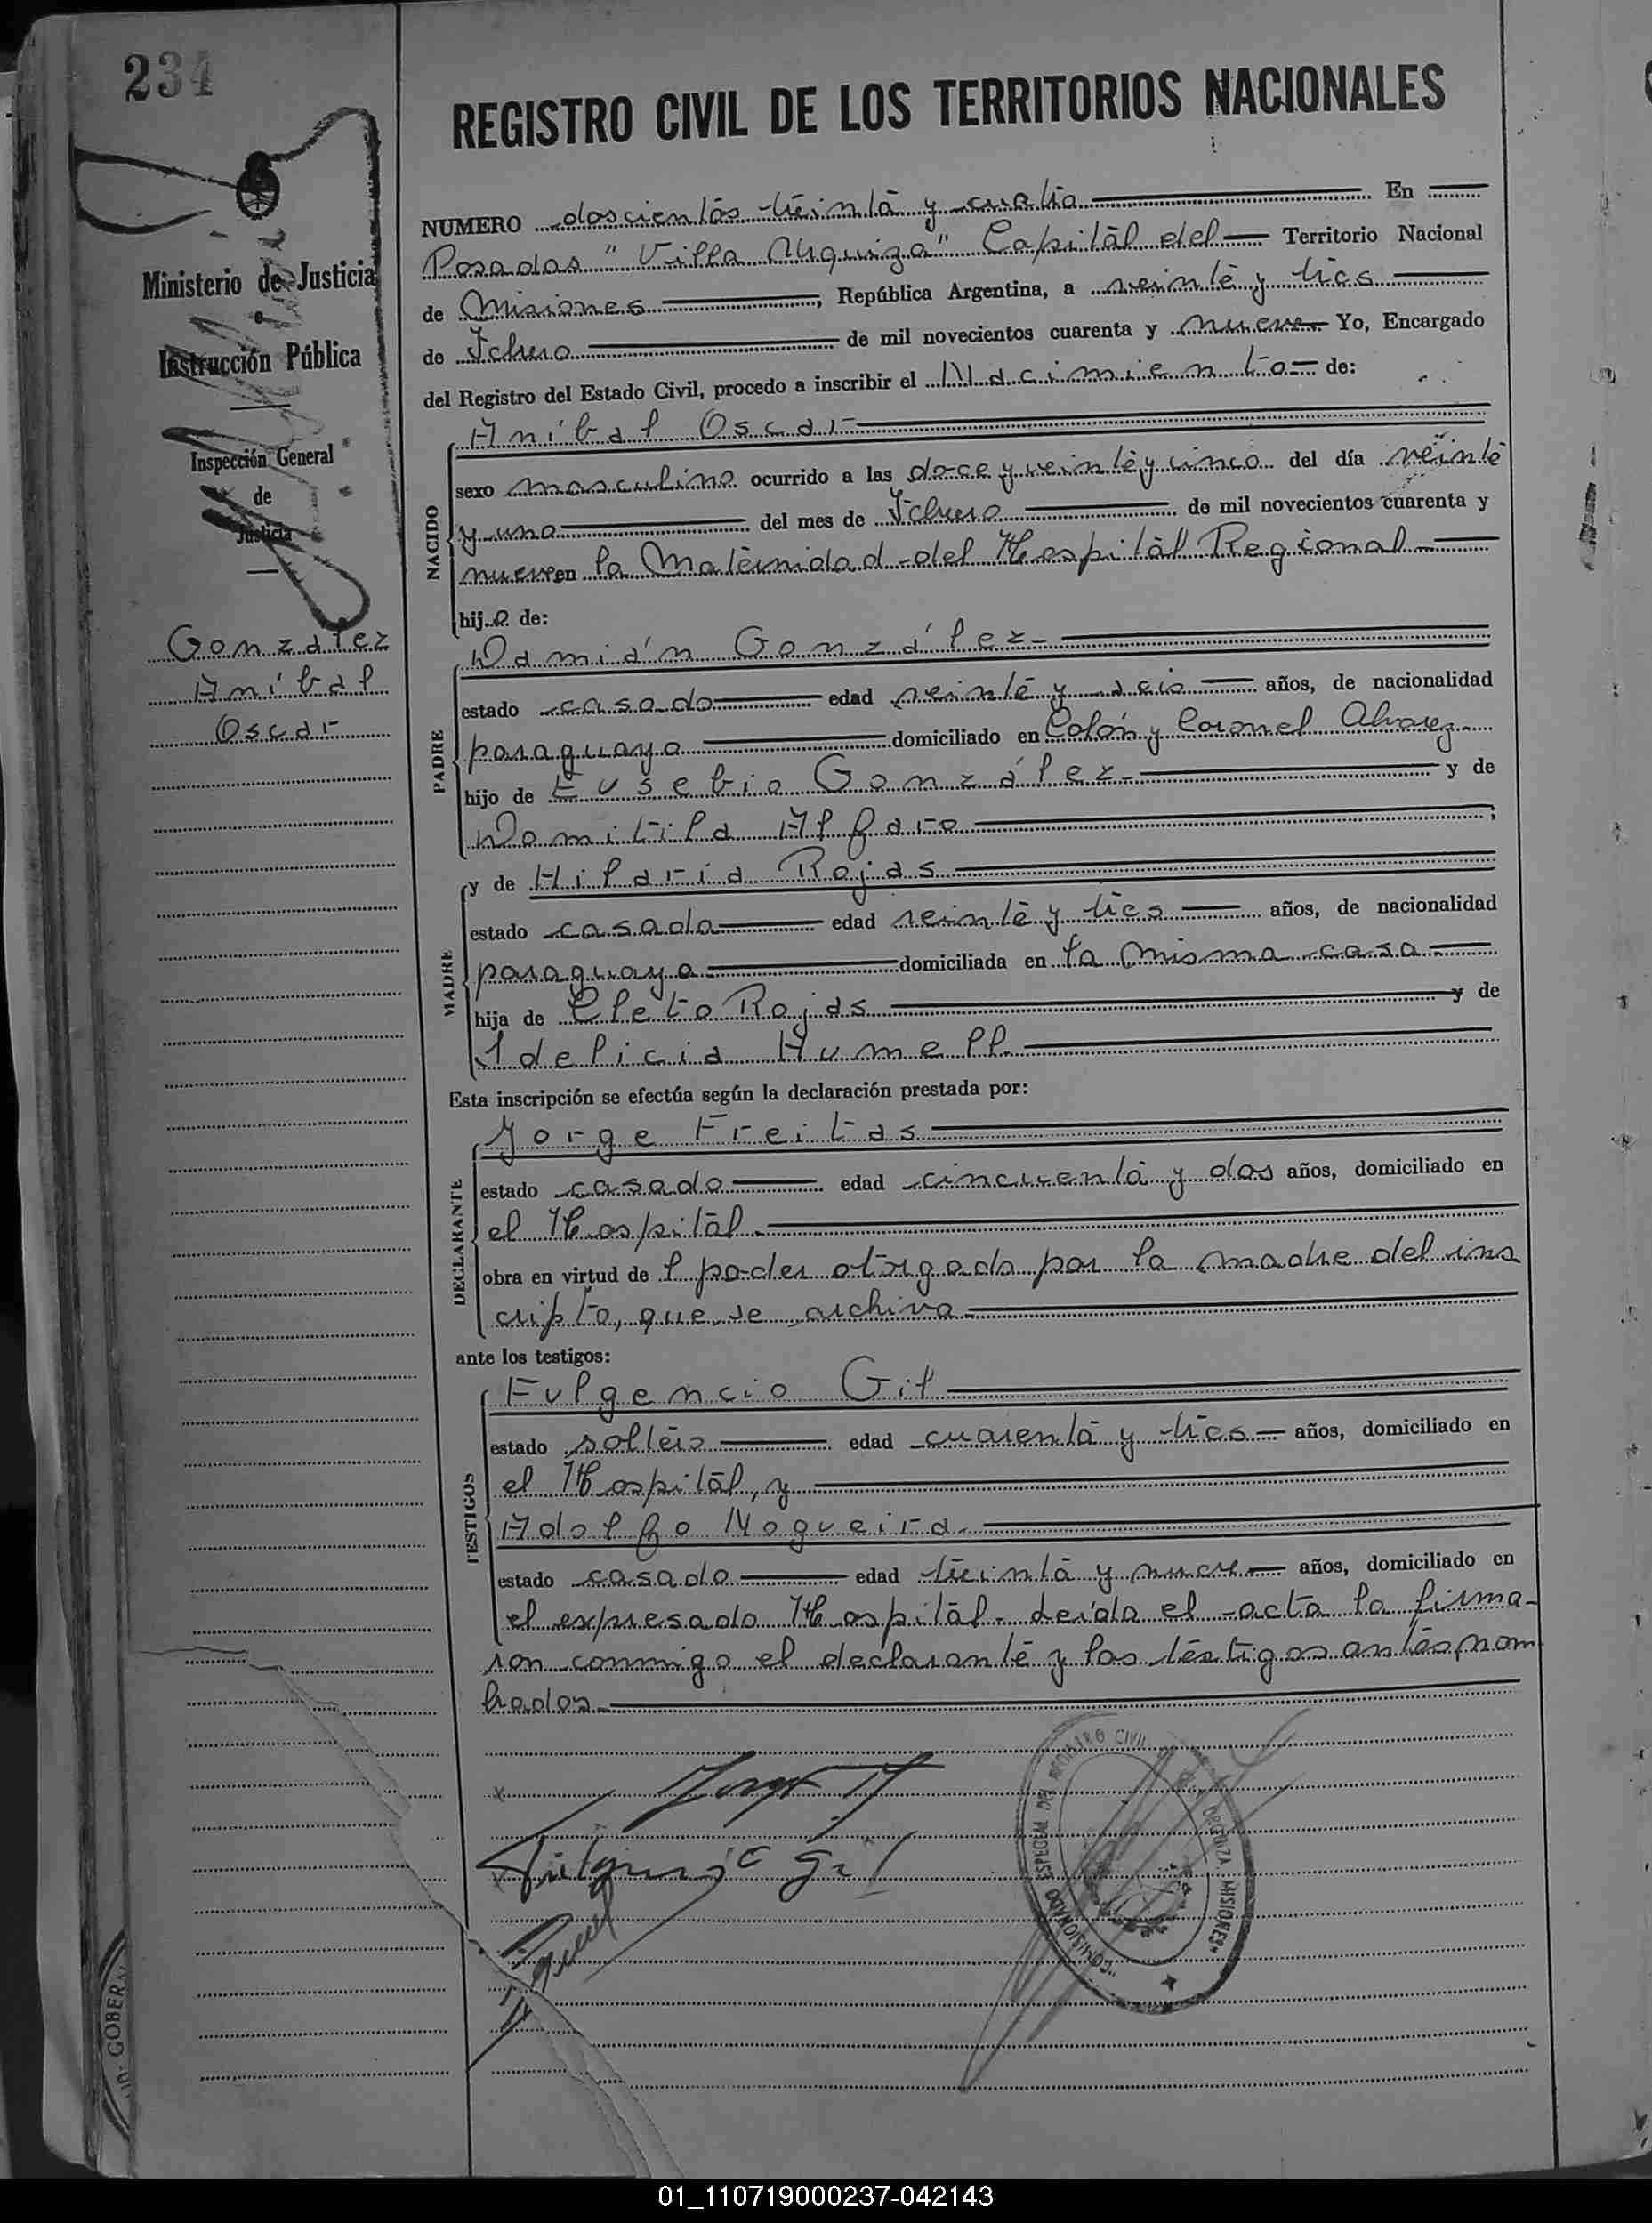 234
REGISTRO CIVIL DE LOS TERRITORIOS NACIONALES
Ministerio de Justicia
Instrucción Pública
Inspección General
de
Justicia
González
Aníbal
Oscar
NUMERO doscientos treinta y cuatro En
Posadas "Villa Urquiza" Capital del Territorio Nacional
de Misiones, República Argentina, a veinte y tres
de Febrero de mil novecientos cuarenta y nueve. Yo, Encargado
del Registro del Estado Civil, procedo a inscribir el Nacimiento de:
NACIDO
Aníbal Oscar
sexo masculino ocurrido a las doce y veinte y cinco del día veinte
y uno del mes de Febrero de mil novecientos cuarenta y
nueve en la Maternidad del Hospital Regional
hijo de:
PADRE
Damián González
estado casado edad veinte y seis años, de nacionalidad
paraguaya domiciliado en Colón y Coronel Alvarez
hijo de Eusebio González y de
Domitila Alfaro;
MADRE
y de Hilaria Rojas
estado casada edad veinte y tres años, de nacionalidad
paraguaya domiciliada en la misma casa
hija de Cleto Rojas y de
Idelicia Humell.
Esta inscripción se efectúa según la declaración prestada por:
DECLARANTE
Jorge Freitas
estado casado edad cincuenta y dos años, domiciliado en
el Hospital.
obra en virtud del poder otorgado por la madre del ins
cripto, que se archiva
ante los testigos:
TESTIGOS
Fulgencio Gil
estado soltero edad cuarenta y tres años, domiciliado en
el Hospital, y
Adolfo Nogueira.
estado casado edad treinta y nueve años, domiciliado en
el expresado Hospital. Leída el acta la firma-
ron conmigo el declarante y los testigos antes nom
brados.
Fulgencio Gil
COMISIONADO ESPECIAL DEL REGISTRO CIVIL
MISIONES
GOBER
01_110719000237-042143